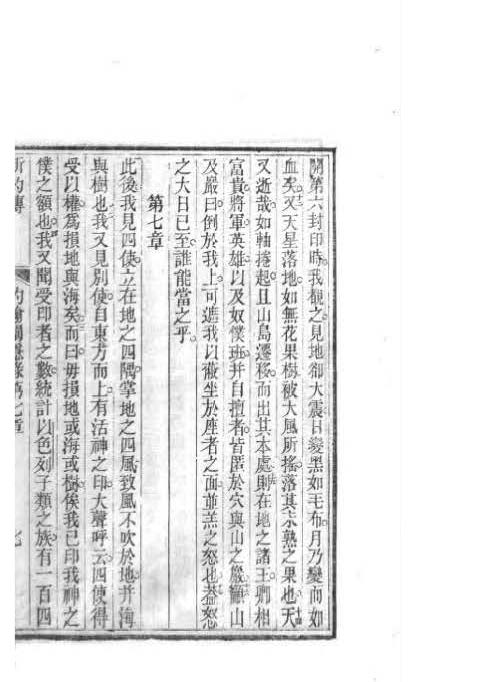 開第六封印時我觀之見地卻大震日變黑如毛布月乃變而如
血矣又天星落地如無花果樹被大風所搖落其未熟之果也天
又逝哉如軸捲起且山島遷移而出其本處則在地之諸王卿相
富貴將軍英雄以及奴僕班并自擅者皆匿於穴與山之巖籲山
及巖曰倒於我上可遮我以蔽坐於座者之面並羔之怒也蓋怒
之大日已至誰能當之乎
第七章
此後我見四使立在地之四隅掌地之四風致風不吹於地并海
與樹也我又見別使自東方而上有活神之印大聲呼云四使得
受以權為損地與海矣而曰毋損地或海或樹俟我已印我神之
僕之額也我又聞受印者之數統計以色列子類之族有一百四
新約傳 約翰 錄第七章 七